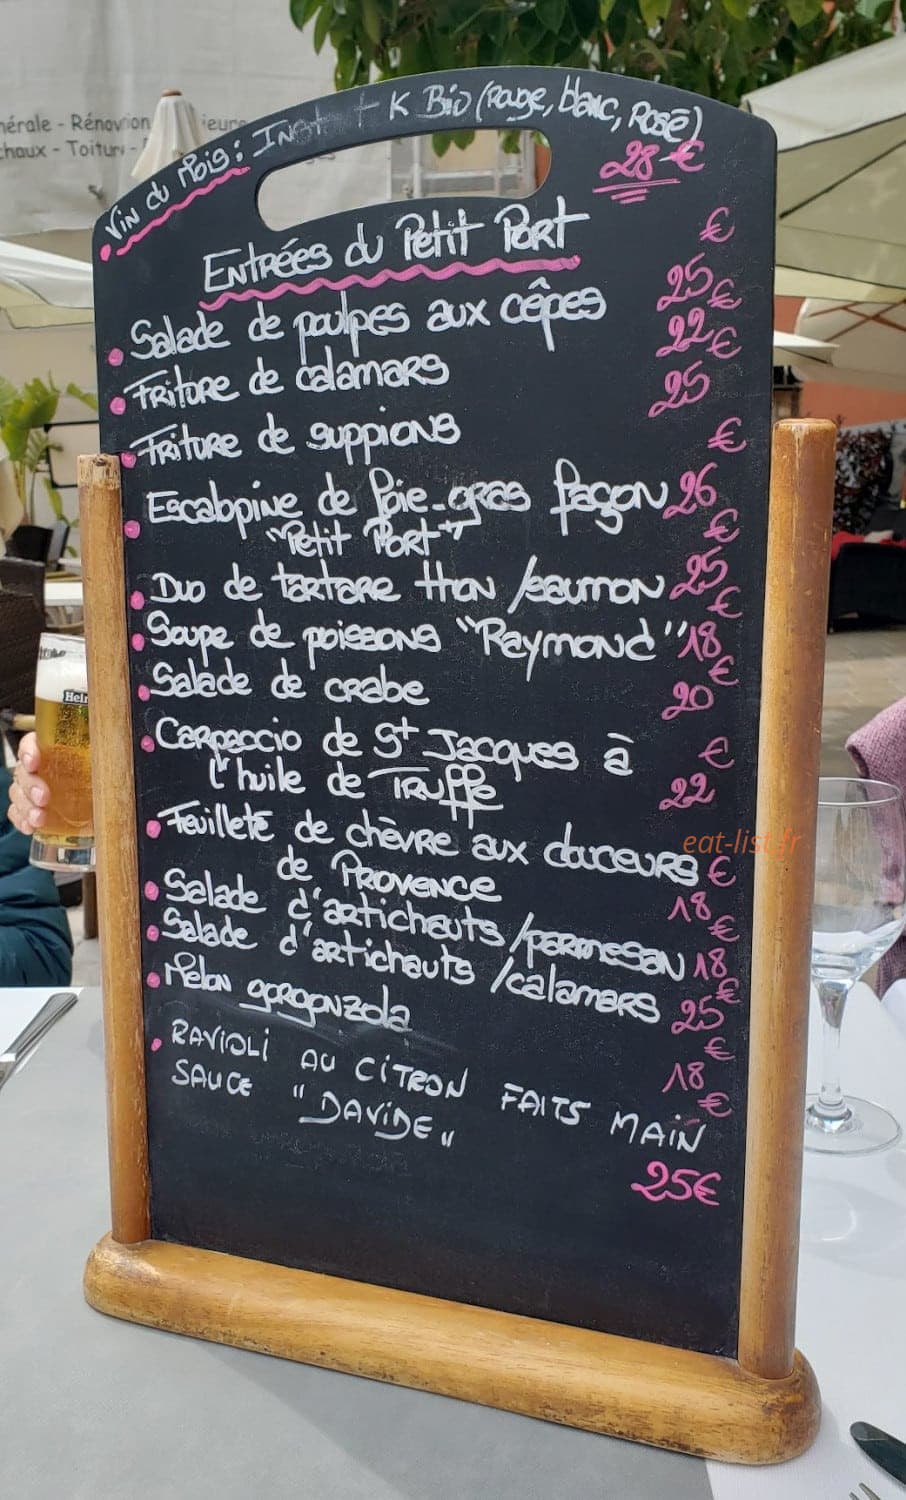 nérale - Rénovation
chaux - Toiture -
Vin du Mois: K Bio (rouge, blanc, Rosé)
28 €
Entrées du Petit Port
€
Salade de poulpes aux cêpes 25 €
Friture de calamars 22 €
Friture de suppions 25
€
Escalopine de foie-gras façon 26
"Petit Port" €
Duo de tartare thon /saumon 25
€
Soupe de poissons "Raymond" 18
€
Salade de crabe 20
Carpaccio de St Jacques à €
l'huile de Truffe 22
Feuilleté de chèvre aux douceurs €
de Provence 18
€
Salade d'artichauts /parmesan 18
€
Salade d'artichauts /calamars 25
€
Melon gorgonzola 18
€
RAVIOLI AU CITRON FAITS MAIN
SAUCE "DAVIDE"
25€
Hein
eat-list.fr